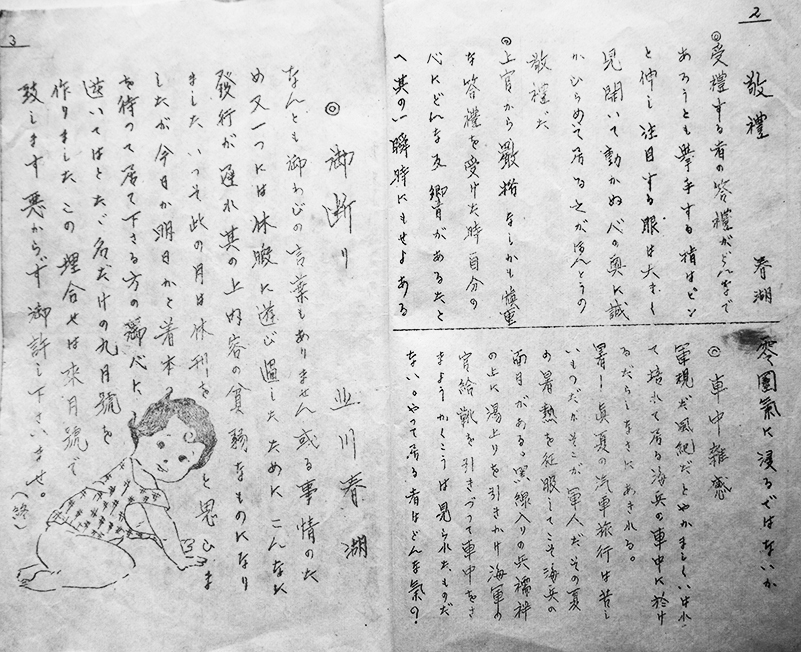 2
敬禮　春湖
◎受禮する者の答禮がどんなで
あろうとも擧手する指はピン
と伸し注目する眼は大きく
見開いて動かぬ心の奥に誠
かひらめいて居る之がほんとうの
敬禮だ
◎上官から嚴格なしかも慎重
な答禮を受けた時自分の
心にどんな反響があるたと
へ其の一瞬時にもせよある
雰囲氣に浸るではないか
車中雑感
軍規だ風紀だとやかましくいはれ
て培れて居る海兵の車中に於け
るだらしなさにあきれる。
暑い眞夏の汽車旅行は苦し
いものだがそこが軍人だその夏
の暑熱を征服してこそ海兵の
面目がある。黒線入りの兵襦袢
の上に湯上りを引きかけ海軍の
官給靴を引きづって車中をさ
まようかっこうは見られたものだ
ない。やって居る者はどんな氣の?
3
◎御断り　北川春湖
なんとも御わびの言葉もありません或る事情のた
め又一つには休暇に遊び過したためにこんなに
發行が遅れ其の上内容の貧弱なものになり
ました いっそ此の月は休刊をと思ひま
したが今日か明日かと着本
を待って居て下さる方の御心に
逆いてはとたゞ名だけの九月號を
作りました この埋合せは來月號で
致します 悪からず御許し下さいませ。
(終)